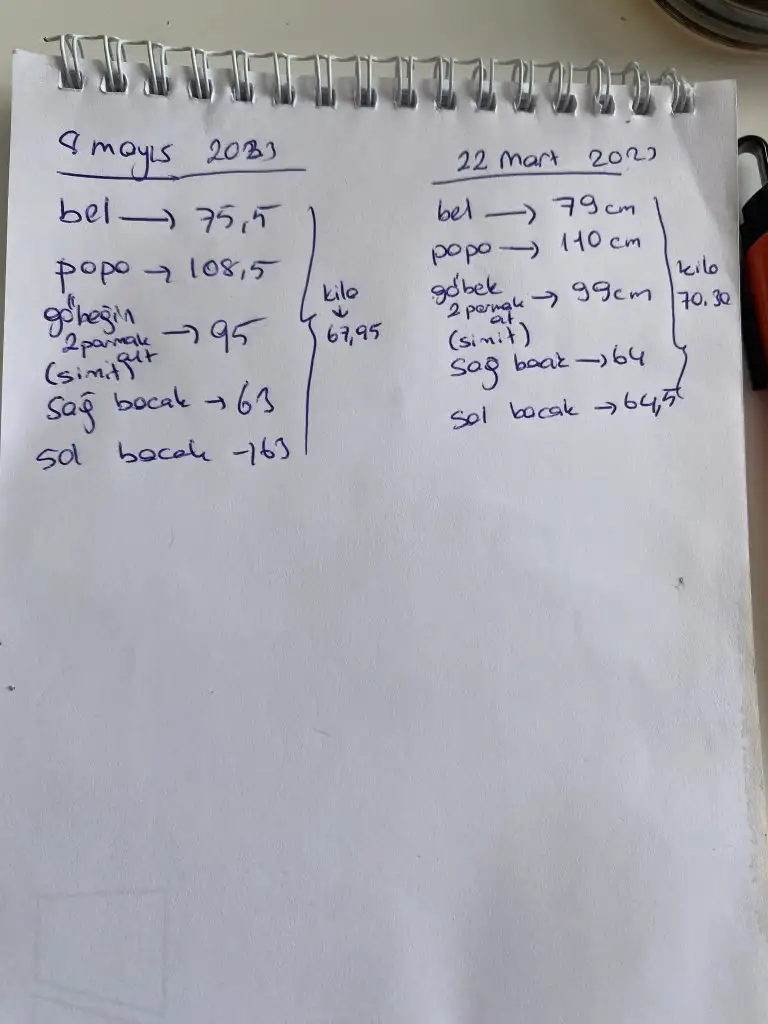 8 mayıs 2023
bel → 75,5
popo → 108,5
göbeğin
2 parmak → 95
alt
(simit)
sağ bacak → 63
sol bacak → 63
kilo
↓
67,95
22 Mart 2023
bel → 79 cm
popo → 110 cm
göbek
2 parmak → 99 cm
alt
(simit)
sağ baak → 64
sol bacak → 64,5
kilo
70.30